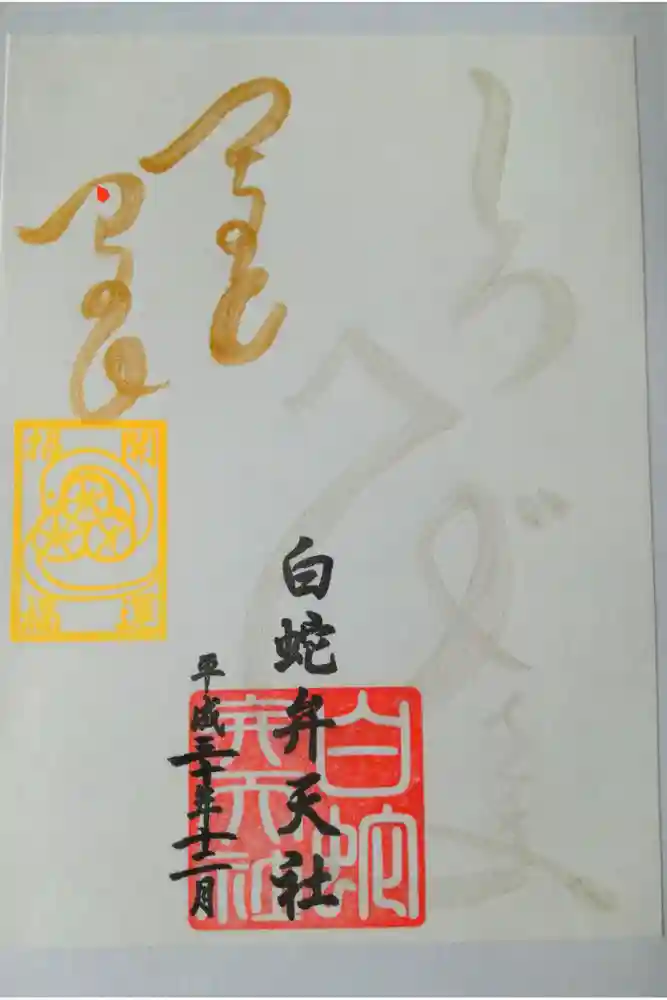 しろへびさま
つちのと
白蛇弁天社
平成三十年十二月
白蛇
弁天社
開運
招福